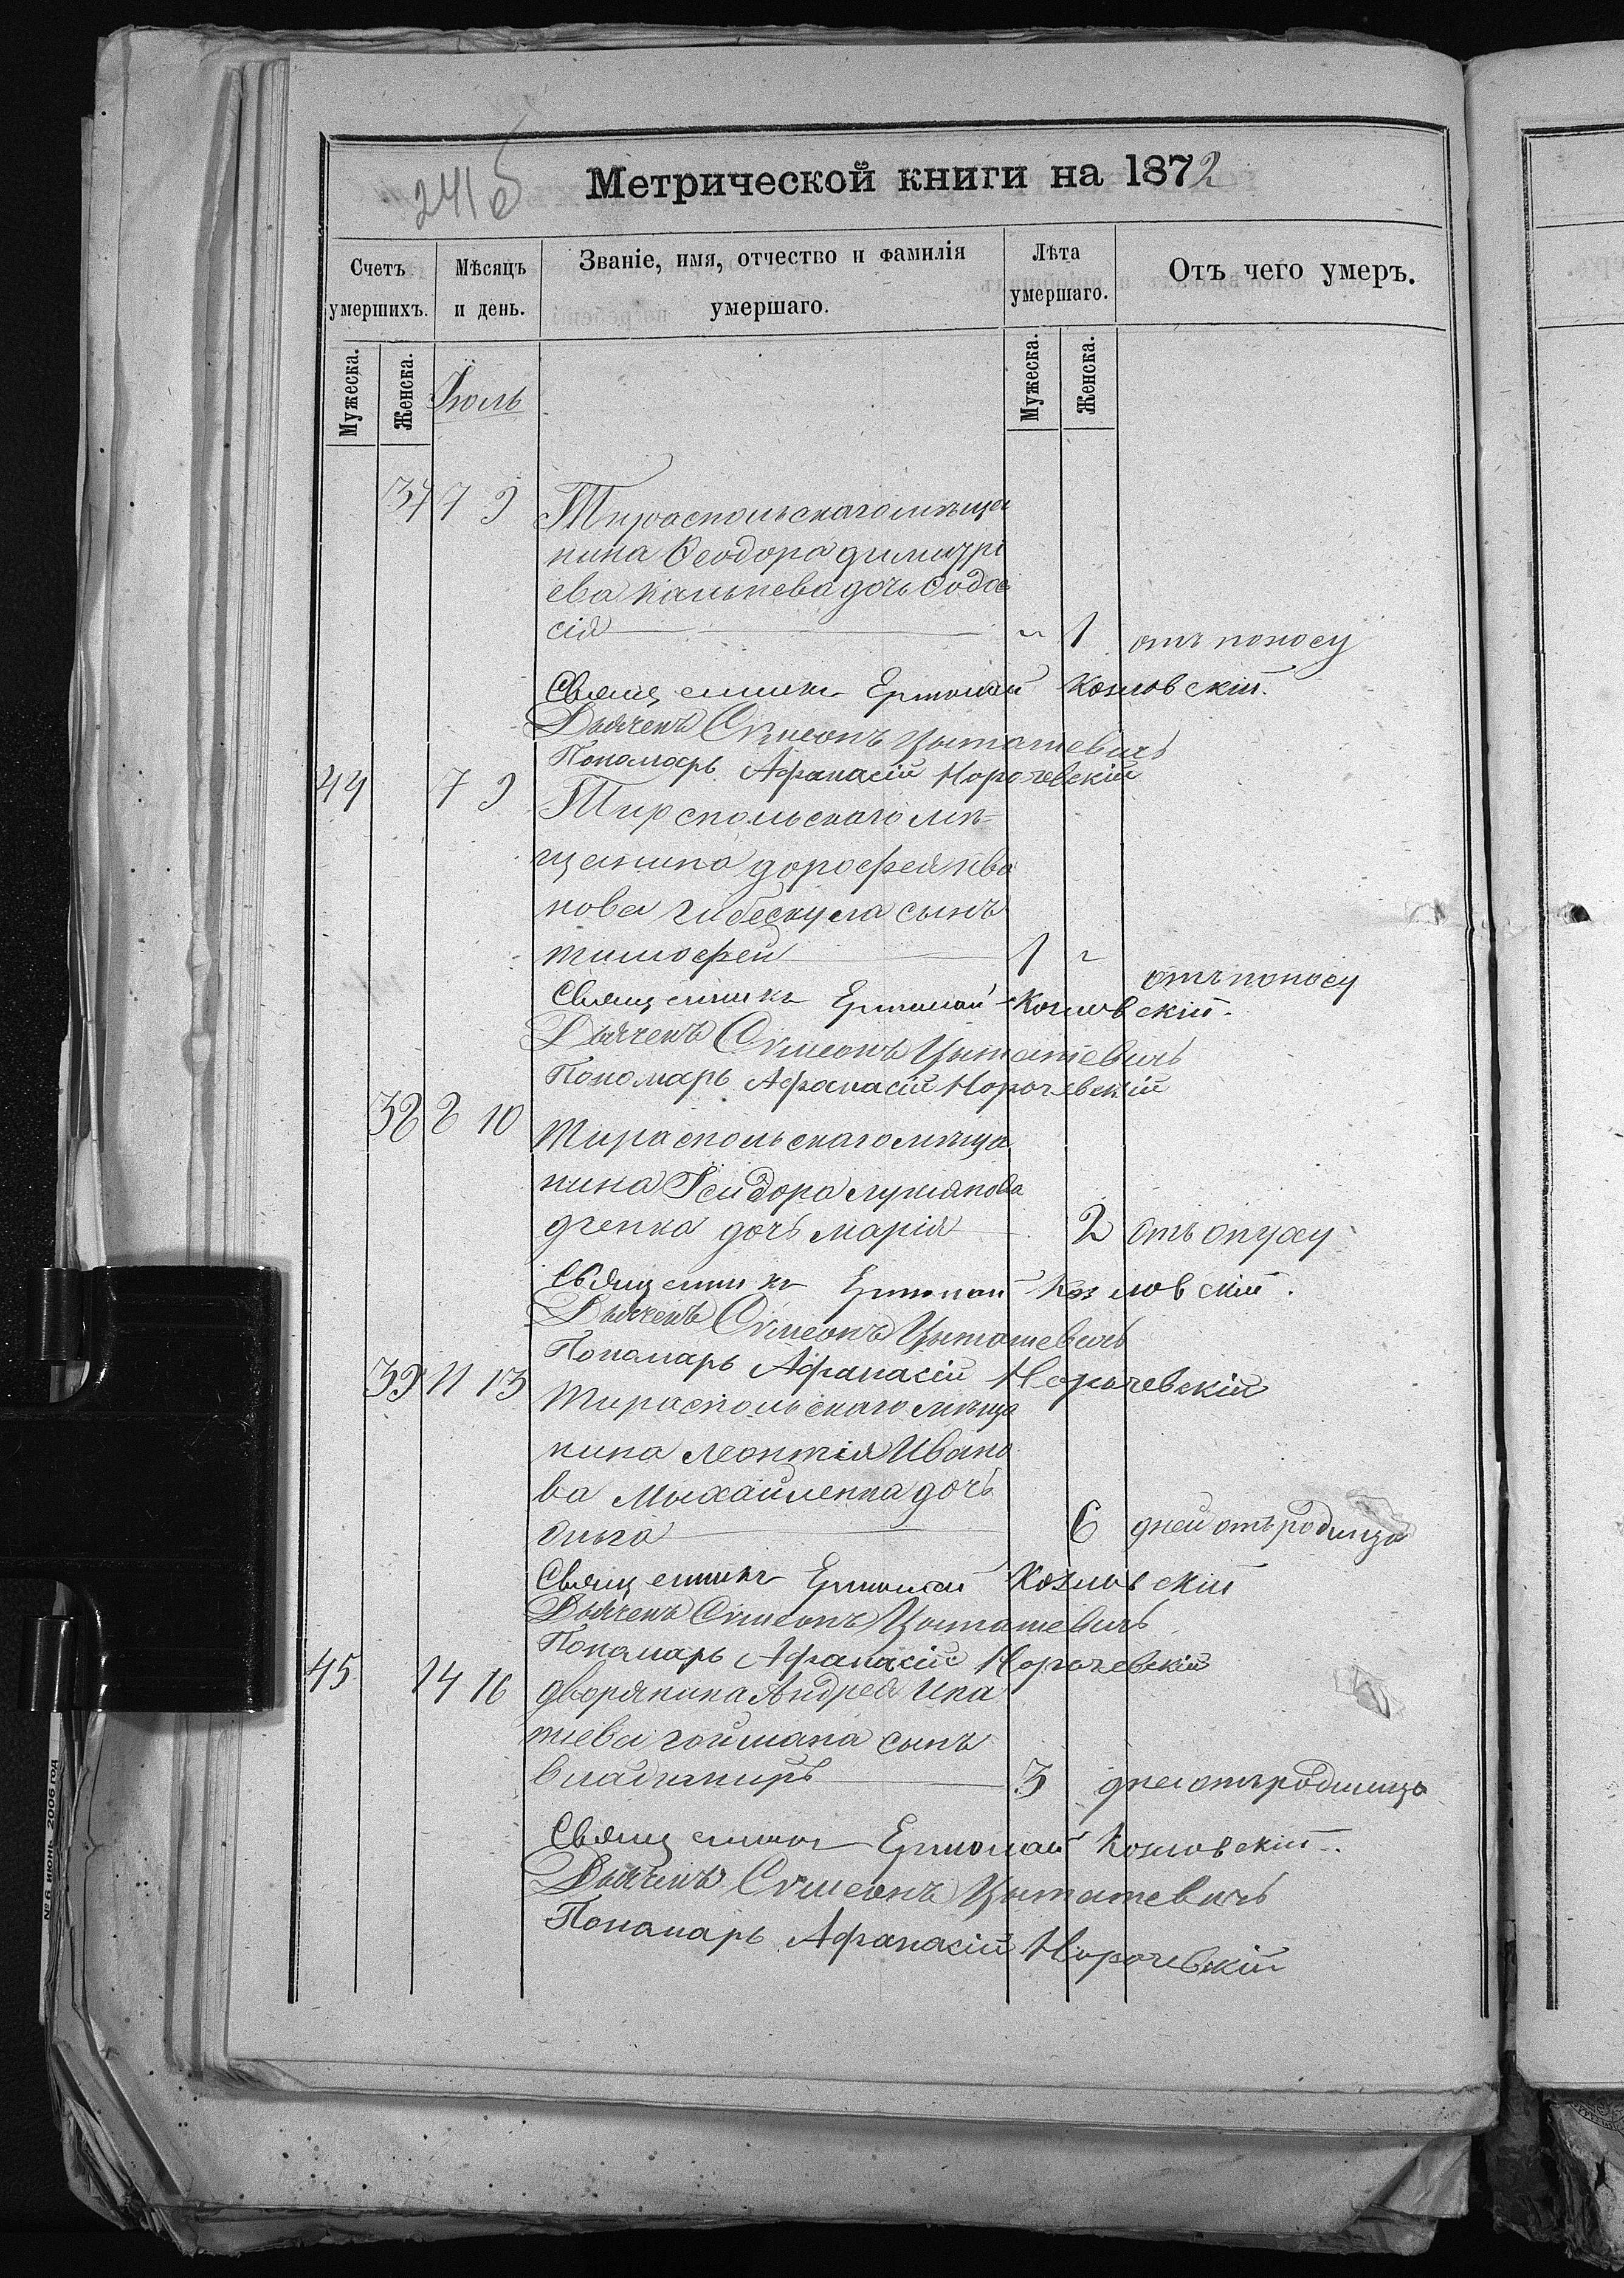 241б
Метрической книги на 1872
Счетъ умершихъ.
Мѣсяцъ и день.
Званіе, имя, отчество и фамилія умершаго.
Лѣта умершаго.
Отъ чего умеръ.
Мужеска.
Женска.
Іюль
Мужеска.
Женска.
37 7 9 Тираспольскаго мѣща
нина Ѳеодора димитрі
ева дочь
сія 1 отъ поносу
Священникъ Ермолай Козловскій.
Дьячекъ Симеонъ Цыташевичъ
Пономарь Афанасій Норочевскій
44 7 9 Тирспольскаго мѣ=
щанина дорофея ива
нова гибескула сынъ
тимофей 1 отъ поносу
Священникъ Ермолай Козловскій.
Дьячекъ Симеонъ Цыташевичъ
Пономарь Афанасій Норочевскій
38 8 10 Тираспольскаго мѣща
нина Ісидора лукіанова
дченка дочь марія 2 отъ опуху
Священникъ Ермолай Козловскій.
Дьячекъ Симеонъ Цыташевичъ
Пономарь Афанасій Норочевскій
39 11 13 Тираспольскаго мѣща
нина леонтія Ивано
ва Михайленка дочь
ольга 6 дней отъ родимца
Священникъ Ермолай Козловскій
Дьячекъ Симеонъ Цыташевичъ
Пономарь Афанасій Норочевскій
45 14 16 дворянина Андрея Игна
тіева гоймана сынъ
владимиръ 3 дней отъ родимца
Священникъ Ермолай Козловскій.
Дьячекъ Симеонъ Цыташевичъ
Пономарь Афанасій Норочевскій
№ 6 июнь 2006 год